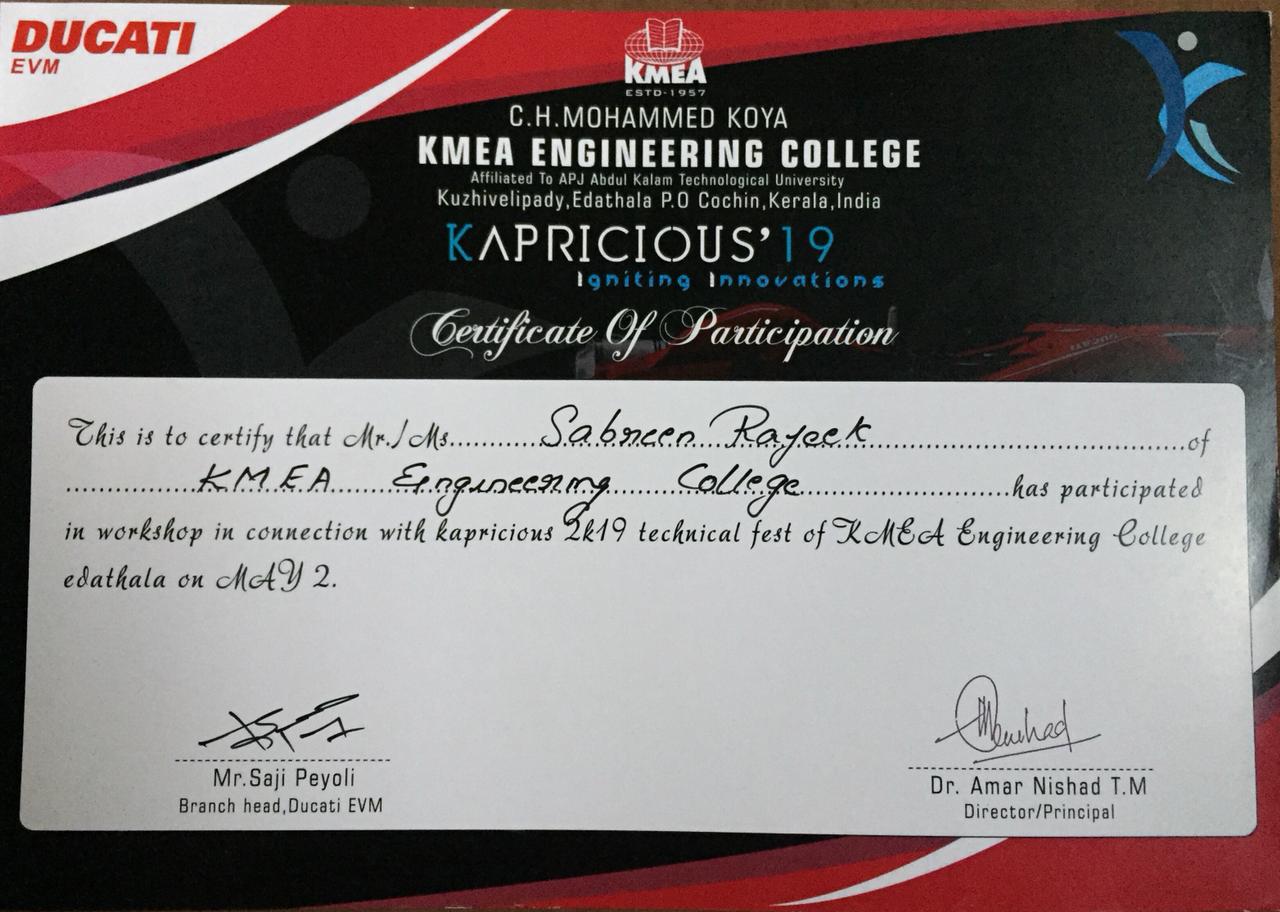 DUCATI
EVM
KMEA
ESTD-1957
C.H.MOHAMMED KOYA
KMEA ENGINEERING COLLEGE
Affiliated To APJ Abdul Kalam Technological University
Kuzhivelipady,Edathala P.O Cochin,Kerala,India
KAPRICIOUS'19
Igniting Innovations
Certificate Of Participation
This is to certify that Mr./Ms..........Sabreen Rayeek..........of
..........KMEA Engineering College..........has participated
in workshop in connection with kapricious 2k19 technical fest of KMEA Engineering College
edathala on MAY 2.
Mr.Saji Peyoli
Branch head,Ducati EVM
Dr. Amar Nishad T.M
Director/Principal